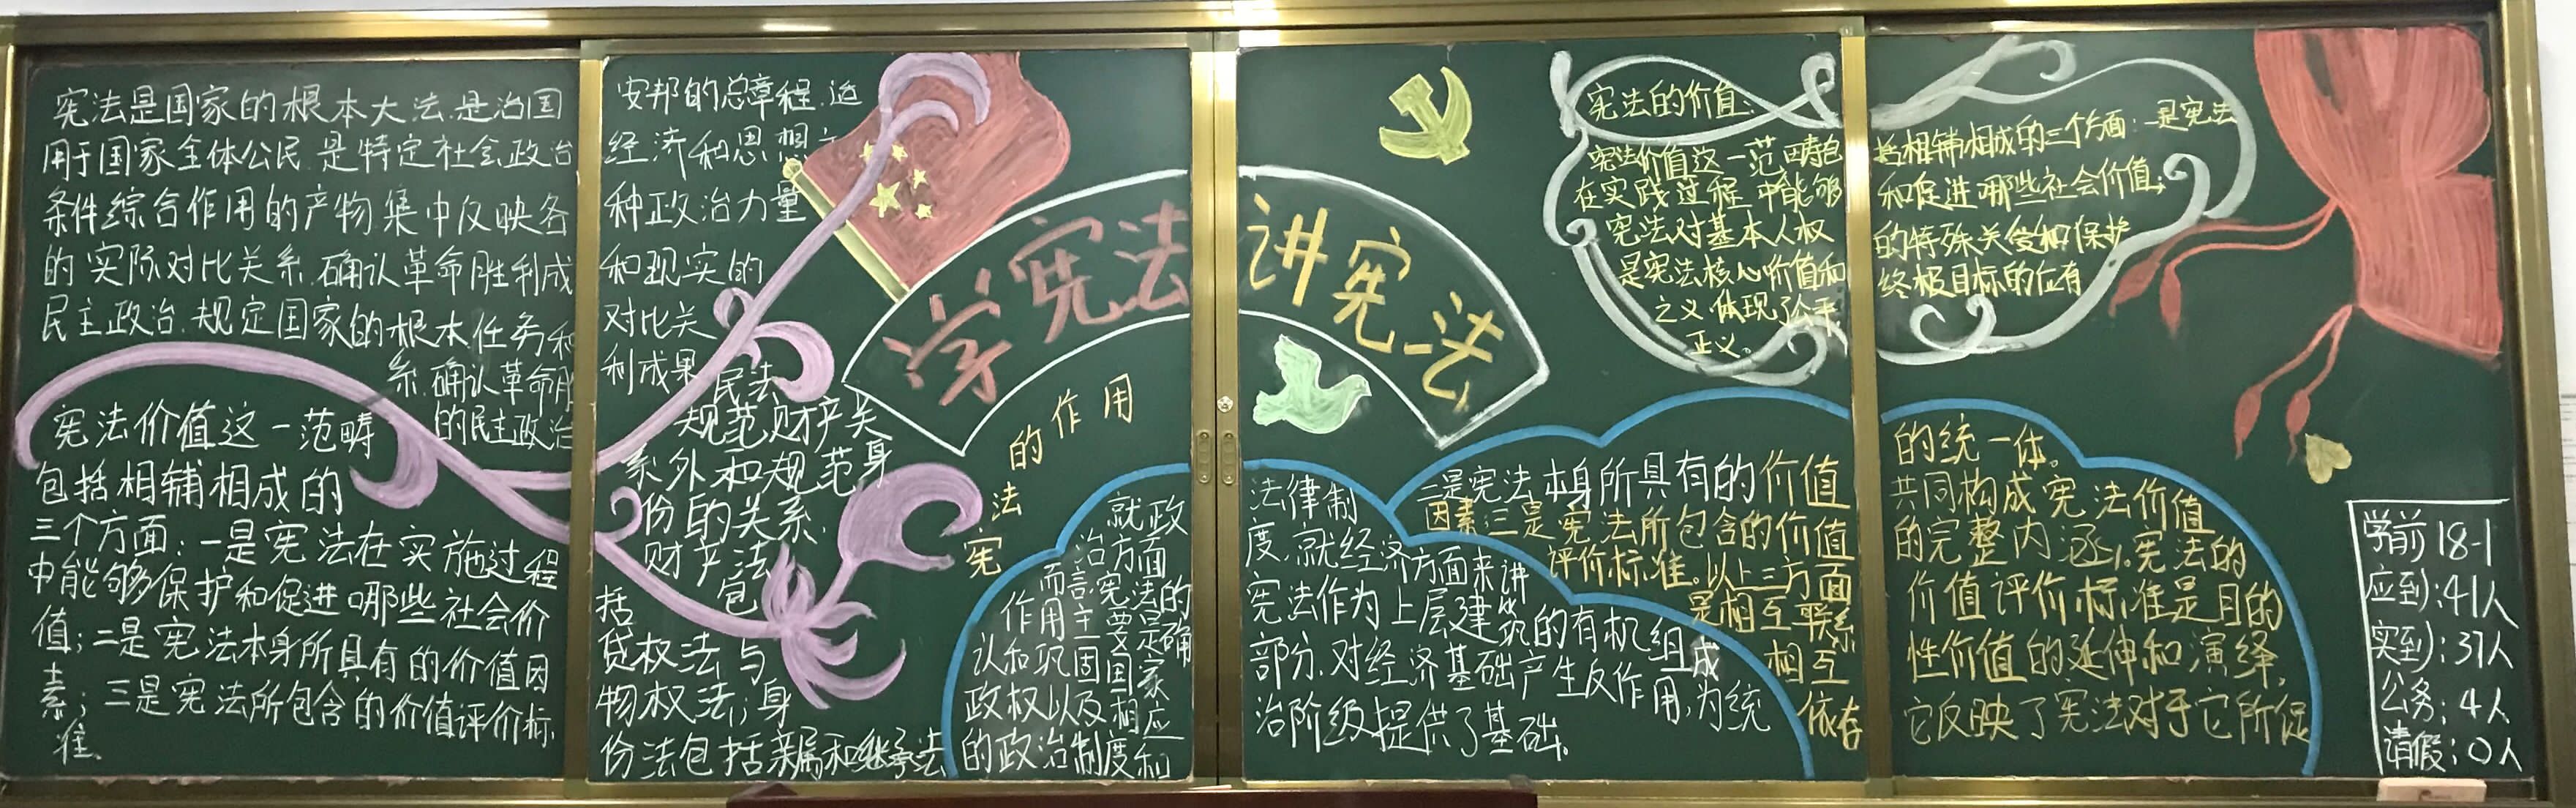 宪法是国家的根本大法.是治国
用于国家全体公民.是特定社会政治
条件综合作用的产物.集中反映各
的实际对比关系.确认革命胜利成
民主政治.规定国家的根本任务和
系.确认革命胜
的民主政治
宪法价值这一范畴
包括相辅相成的
三个方面:一是宪法在实施过程
中能够保护和促进哪些社会价
值;二是宪法本身所具有的价值因
素;三是宪法所包含的价值评价标
准.
安邦的总章程.适
经济和思想
种政治力量
和现实的
对比关
利成果
民法
规范财产关
系外和规范身
份的关系.
财产法
包
括
贷权法与
物权法;身
份法包括亲属和继承法
学宪法
讲宪法
宪法的作用
就政
治方面
而言,宪法的
作用主要是确
认和巩固国家
政权以及相应
的政治制度和
法律制
度.就经济方面来讲
宪法作为上层建筑的有机组成
部分.对经济基础产生反作用,为统
治阶级提供了基础.
宪法的价值:
宪法价值这一范畴包
在实践过程中能够
宪法对基本人权
是宪法核心价值和
之义.体现了公平
正义。
括相辅相成的三个方面:一是宪法
和促进哪些社会价值;
的特殊关爱和保护
终极目标的应有
二是宪法本身所具有的价值
因素三是宪法所包含的价值
评价标准。以上三方面
是相互联系
相互
依存
的统一体。
共同构成宪法价值
的完整内涵.宪法的
价值评价标准是目的
性价值的延伸和演绎,
它反映了宪法对于它所促
学前18-1
应到:41人
实到:37人
公务:4人
请假:0人